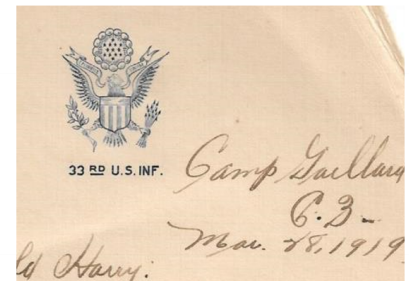 33 RD U.S. INF.
Camp Gaillard
C.Z.
Mar. 28, 1919
ld Harry: